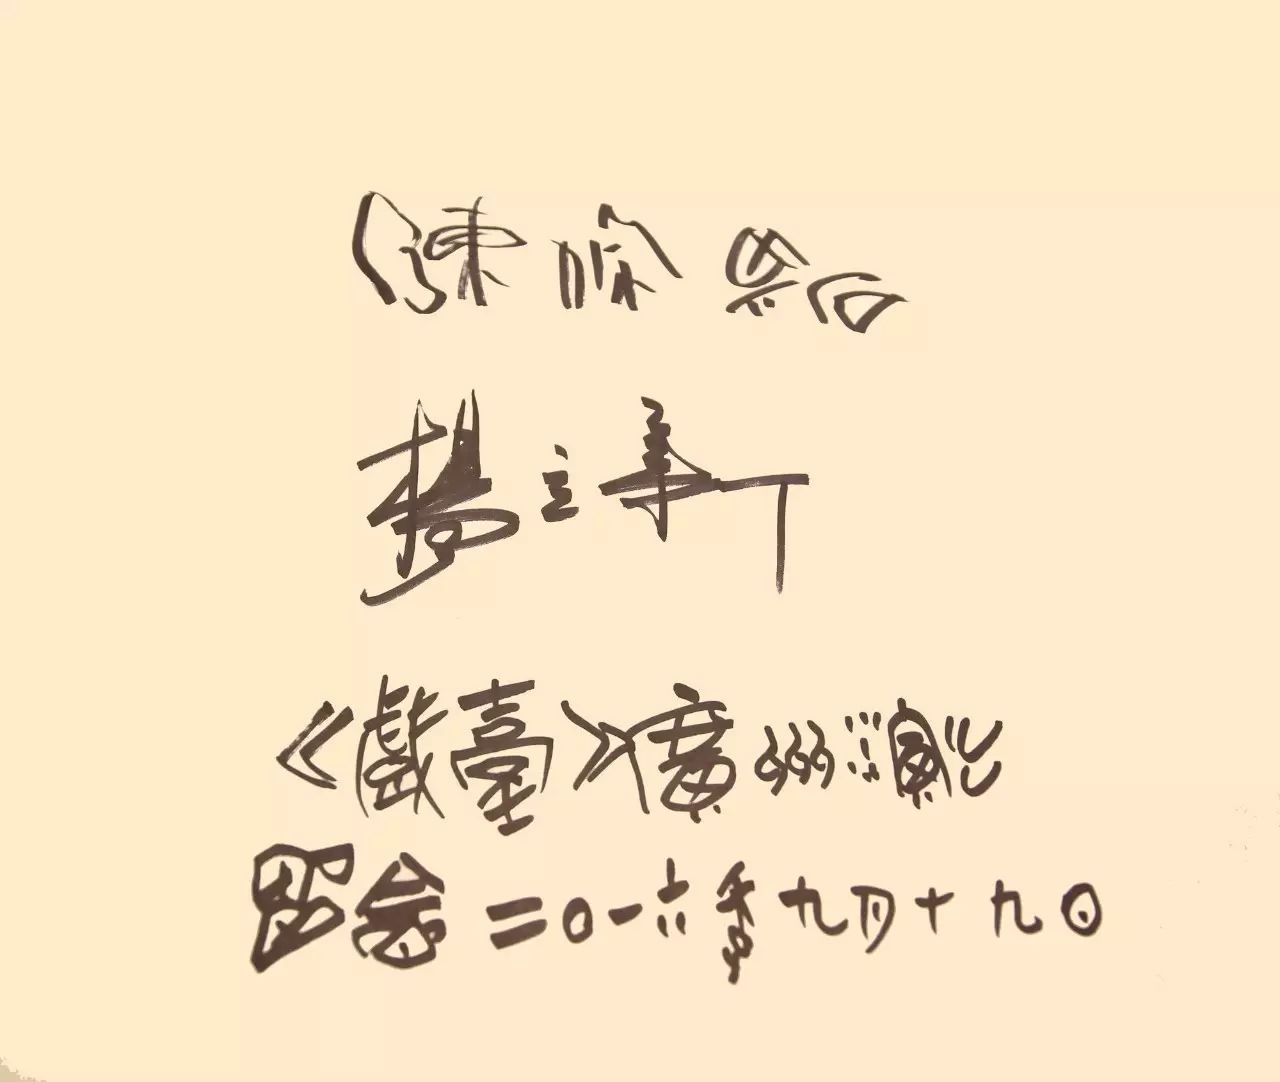 陳
楊立新
《戲臺》廣州演出
留念 二〇一六年九月十九日